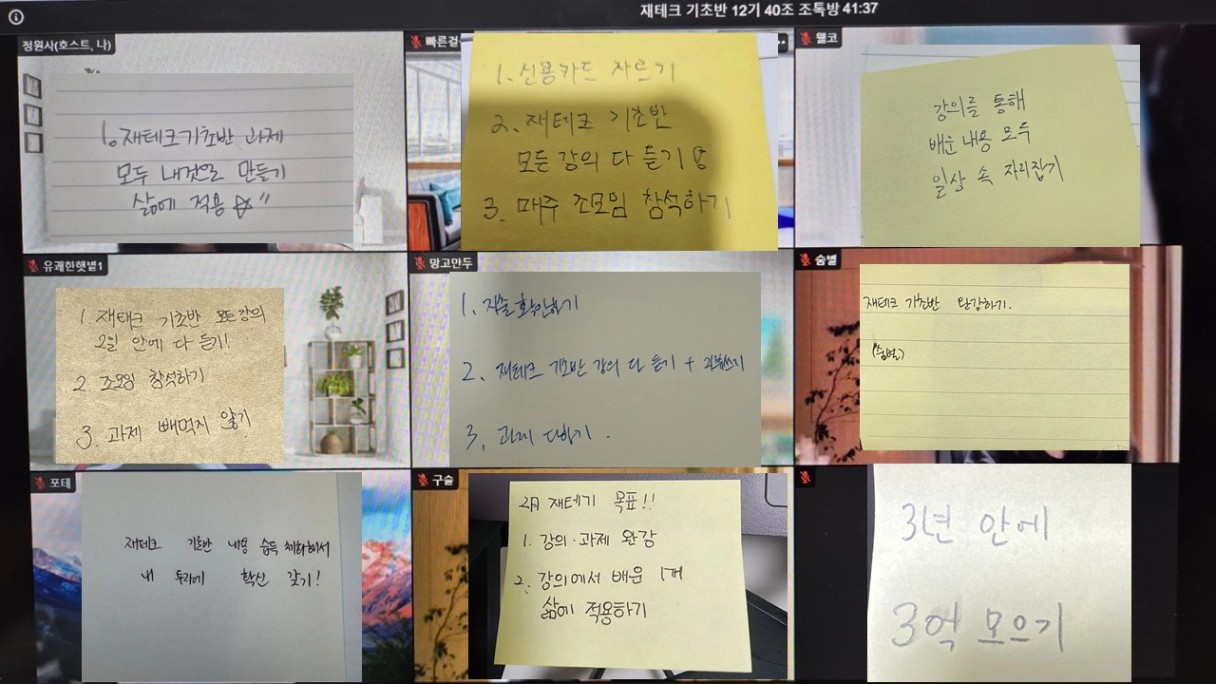 재테크 기초반 12기 40조 조톡방 41:37
정원사(호스트, 나)
1. 재테크기초반 과제
모두 내것으로 만들기
삶에 적용
빠른걸
1. 신용카드 자르기
2. 재테크 기초반
모든 강의 다 듣기
3. 매주 조모임 참석하기
웰코
강의를 통해
배운 내용 모두
일상 속 자리잡기
유쾌한햇볕1
1. 재태크 기초반 모든강의
2월 안에 다 듣기!
2 조모임 참석하기
3. 과제 빼먹지 않기
망고만두
1. 지출 확인하기
2. 재테크 기초반 강의 다 듣기 +
3. 과제 다하기.
숨별
재테크 기초반 완강하기.
(숨별)
포테
재테크 기초반 내용 습득 체화해서
내 투자에 확신 갖기!
구슬
2月 재테기 목표!!
1. 강의·과제 완강
2. 강의에서 배운 1개
삶에 적용하기
3년 안에
3억 모으기